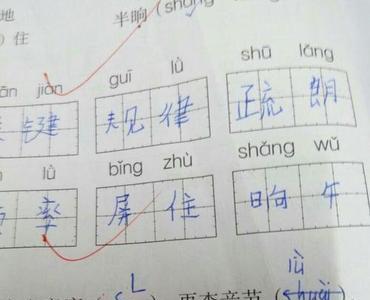 地 半晌（shǎng
）住
jiàn guī lǜ shū lǎng
键 规律 疏朗
lǜ bǐng zhù shǎng wǔ
率 屏住 晌午
lǜ
L ），再查音节（